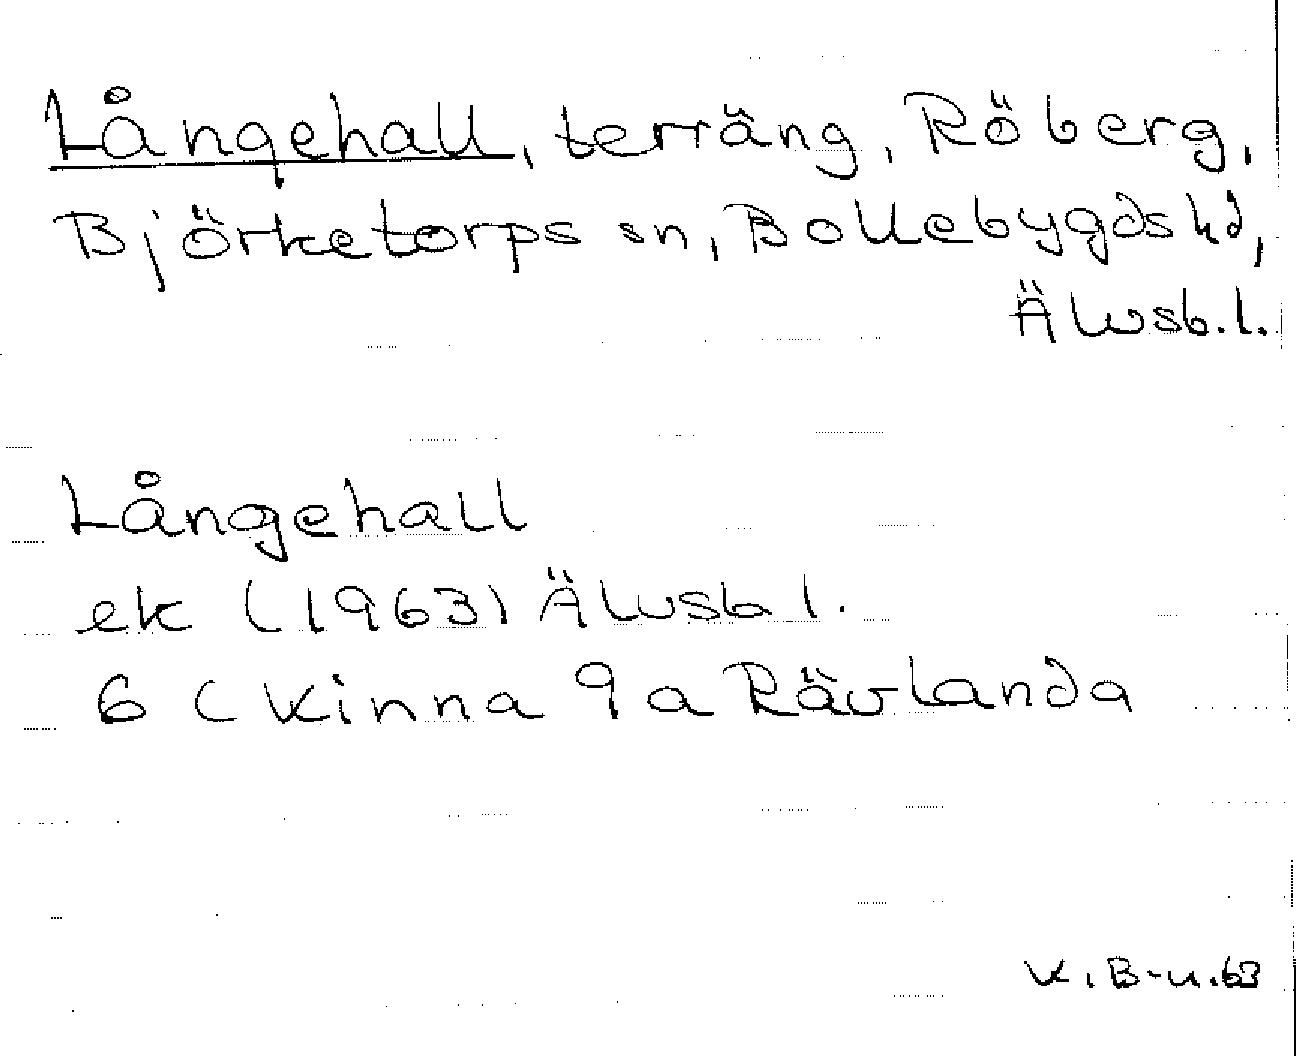 Långehall, terräng, Röberg,
Björketorps sn, Bollebygds hd,
Älvsb. l.
Långehall
ek (1963) Älvsb l.
6 C Kinna 9 a Rävlanda
K. B-n. 63